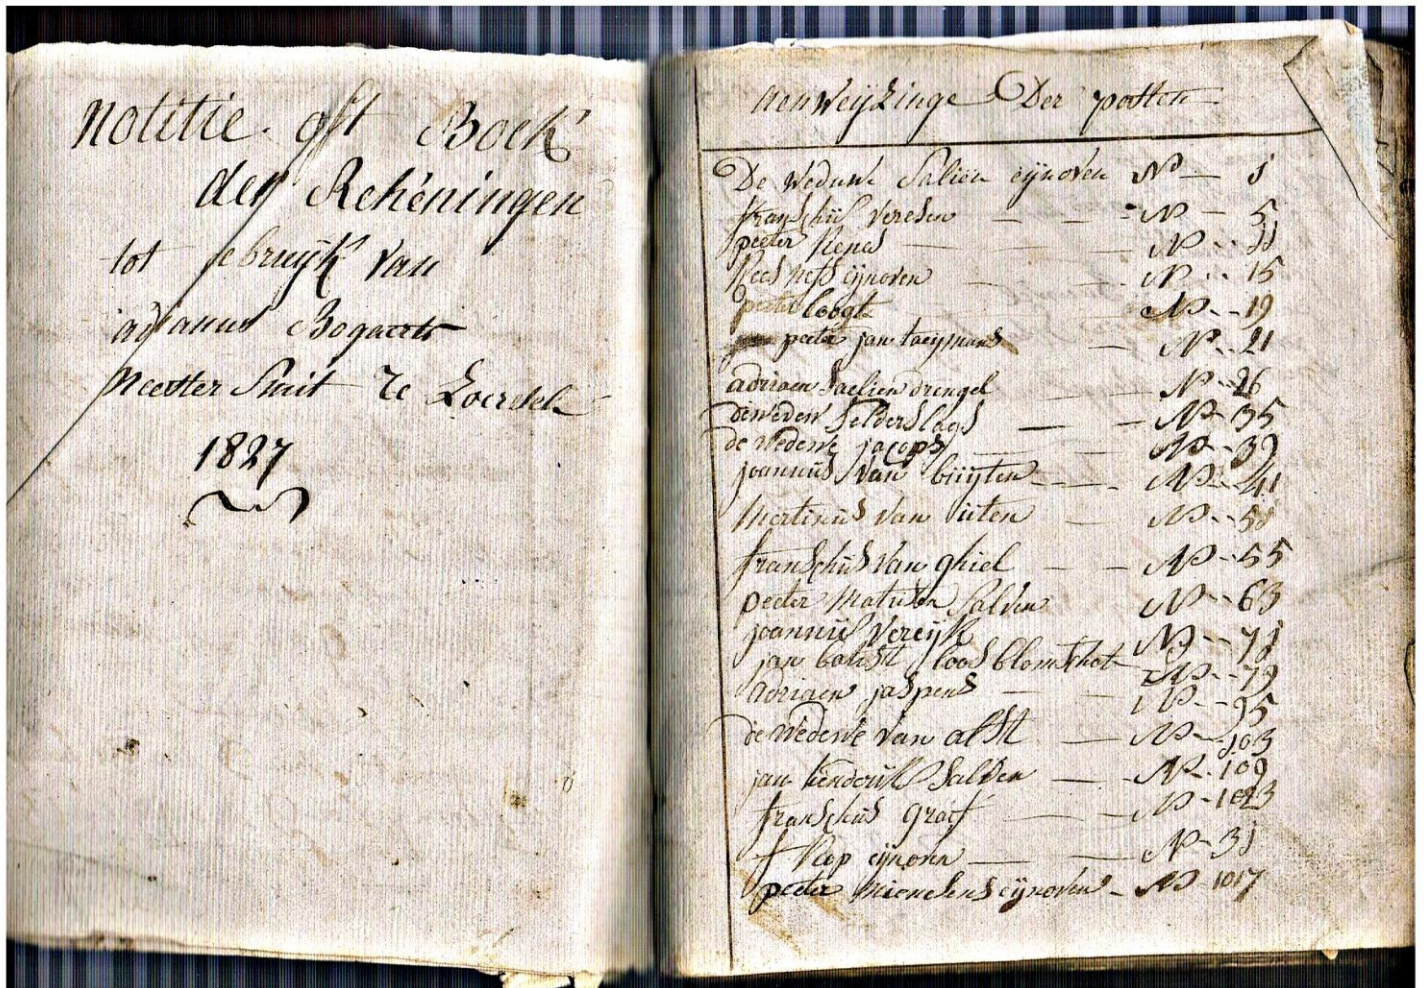 notitie oft Boek
der Rekeningen
tot gebruijk van
adrianus Bogaerts
Meester Smit te
1827
aenweijzinge Der posten
De Weduwe Salien eijnoven N 1
franschus Veresen N 5
peeter N 11
eijnoven N 15
peeter loogt N 19
peeter jan taeijmans N 21
adriaen Saelien drengel N 26
de weduw Selderslags N 35
de Wedewe jacops N 39
joannus Van buijten N 41
Martinus Van uiten N
franschus Van ghiel N 55
peeter Salden N 63
joannus Vereijk N 71
jan batist loos blomshot N 79
adriaen jaspens N 95
de Wedewe Van alst N 103
jan henderik Salden N 109
franschus graef N
f eijnoven N 31
peeter eijnoven N 1017